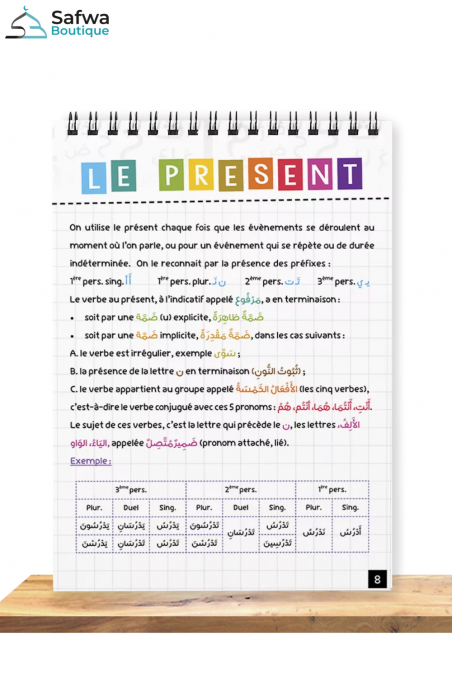 Safwa
Boutique
LE PRESENT
On utilise le présent chaque fois que les évènements se déroulent au
moment où l'on parle, ou pour un événement qui se répète ou de durée
indéterminée. On le reconnait par la présence des préfixes :
1ère pers. sing. أ أُ 1ère pers. plur. ن نُـ 2ème pers. ت تُـ 3ème pers. يـ يُـ
Le verbe au présent, à l'indicatif appelé مَرْفُوعٌ, a en terminaison :
• soit par une ضَمَّة (u) explicite, ضَمَّةٌ ظَاهِرَةٌ
• soit par une ضَمَّة implicite, ضَمَّةٌ مُقَدَّرَةٌ, dans les cas suivants :
A. le verbe est irrégulier, exemple سَوَّى ;
B. la présence de la lettre ن en terminaison (ثُبُوتُ النُّونِ) ;
C. le verbe appartient au groupe appelé الأَفْعَالُ الخَمْسَةُ (les cinq verbes),
c'est-à-dire le verbe conjugué avec ces 5 pronoms : أَنْتِ، أَنْتُمَا، هُمَا، أَنْتُم، هُمْ.
Le sujet de ces verbes, c'est la lettre qui précède le ن, les lettres الأَلِفُ،
اليَاءُ، الوَاوِ, appelée ضَمِيرٌ مُتَّصِلٌ (pronom attaché, lié).
Exemple :
3ème pers. 2ème pers. 1ère pers.
Plur. Duel Sing. Plur. Duel Sing. Plur. Sing.
يَدْرُسُونَ يَدْرُسَانِ يَدْرُسُ تَدْرُسُونَ تَدْرُسَانِ تَدْرُسُ نَدْرُسُ أَدْرُسُ
يَدْرُسْنَ تَدْرُسَانِ تَدْرُسُ تَدْرُسْنَ تَدْرُسِينَ
8